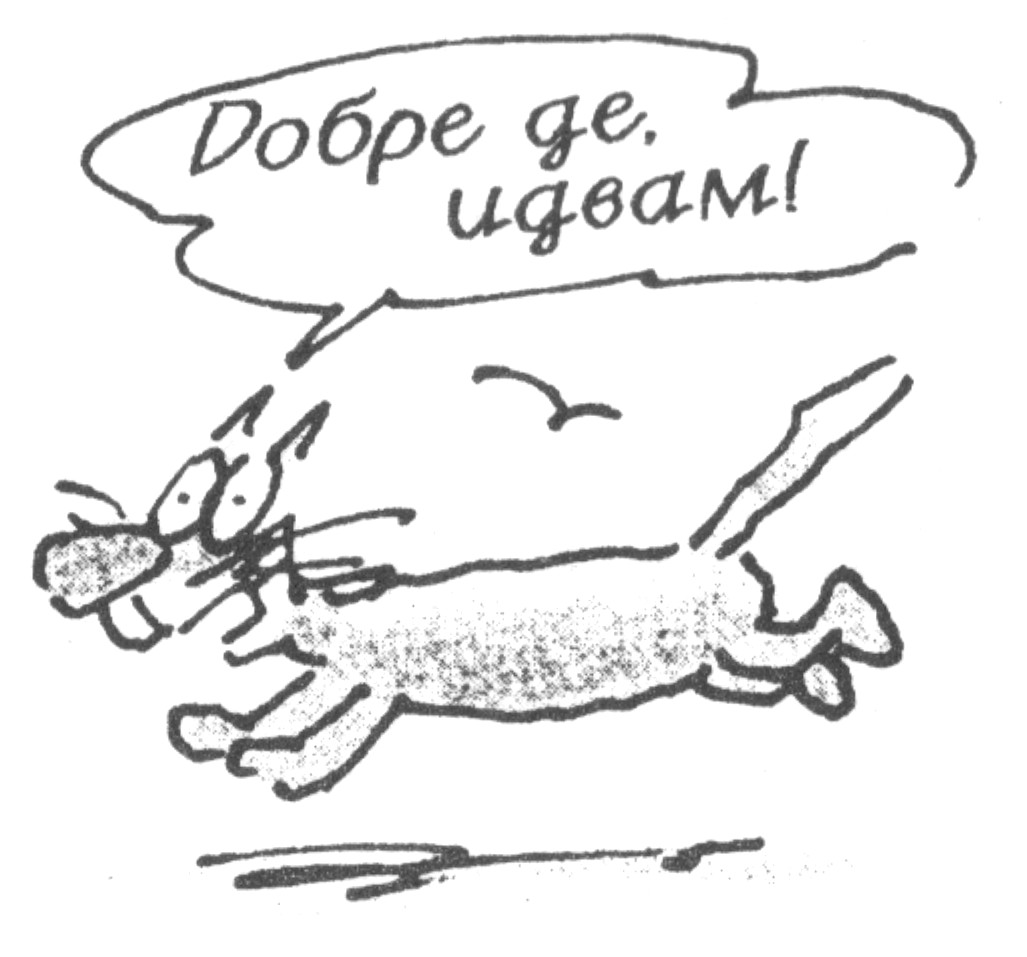 Добре де,
идвам!